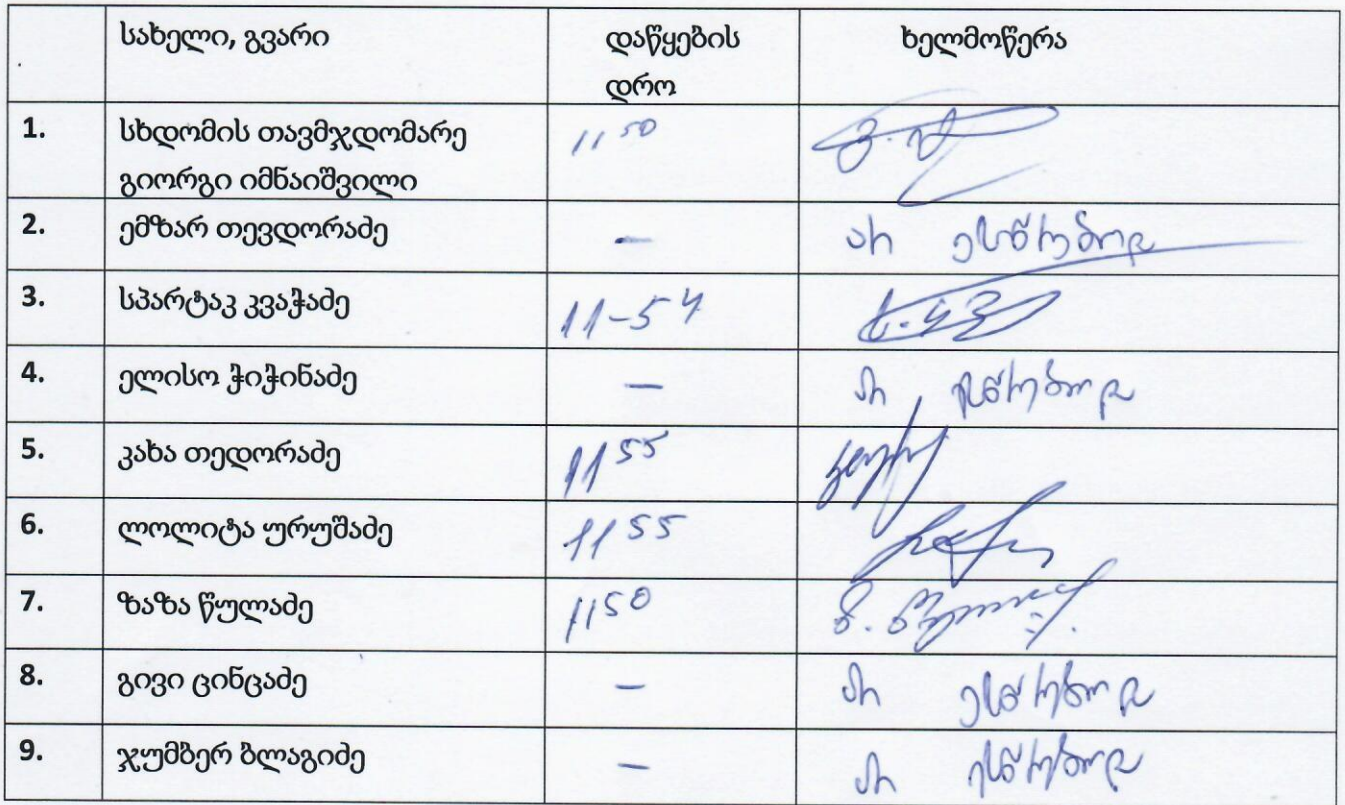 სახელი, გვარი დაწყების დრო ხელმოწერა
1. სხდომის თავმჯდომარე გიორგი იმნაიშვილი 11 50
2. ემზარ თევდორაძე — არ ესწრებოდა
3. სპარტაკ კვაჭაძე 11-54
4. ელისო ჭიჭინაძე — არ ესწრებოდა
5. კახა თედორაძე 11 55
6. ლოლიტა ურუშაძე 11 55
7. ზაზა წულაძე 11 50
8. გივი ცინცაძე — არ ესწრებოდა
9. ჯუმბერ ბლაგიძე — არ ესწრებოდა